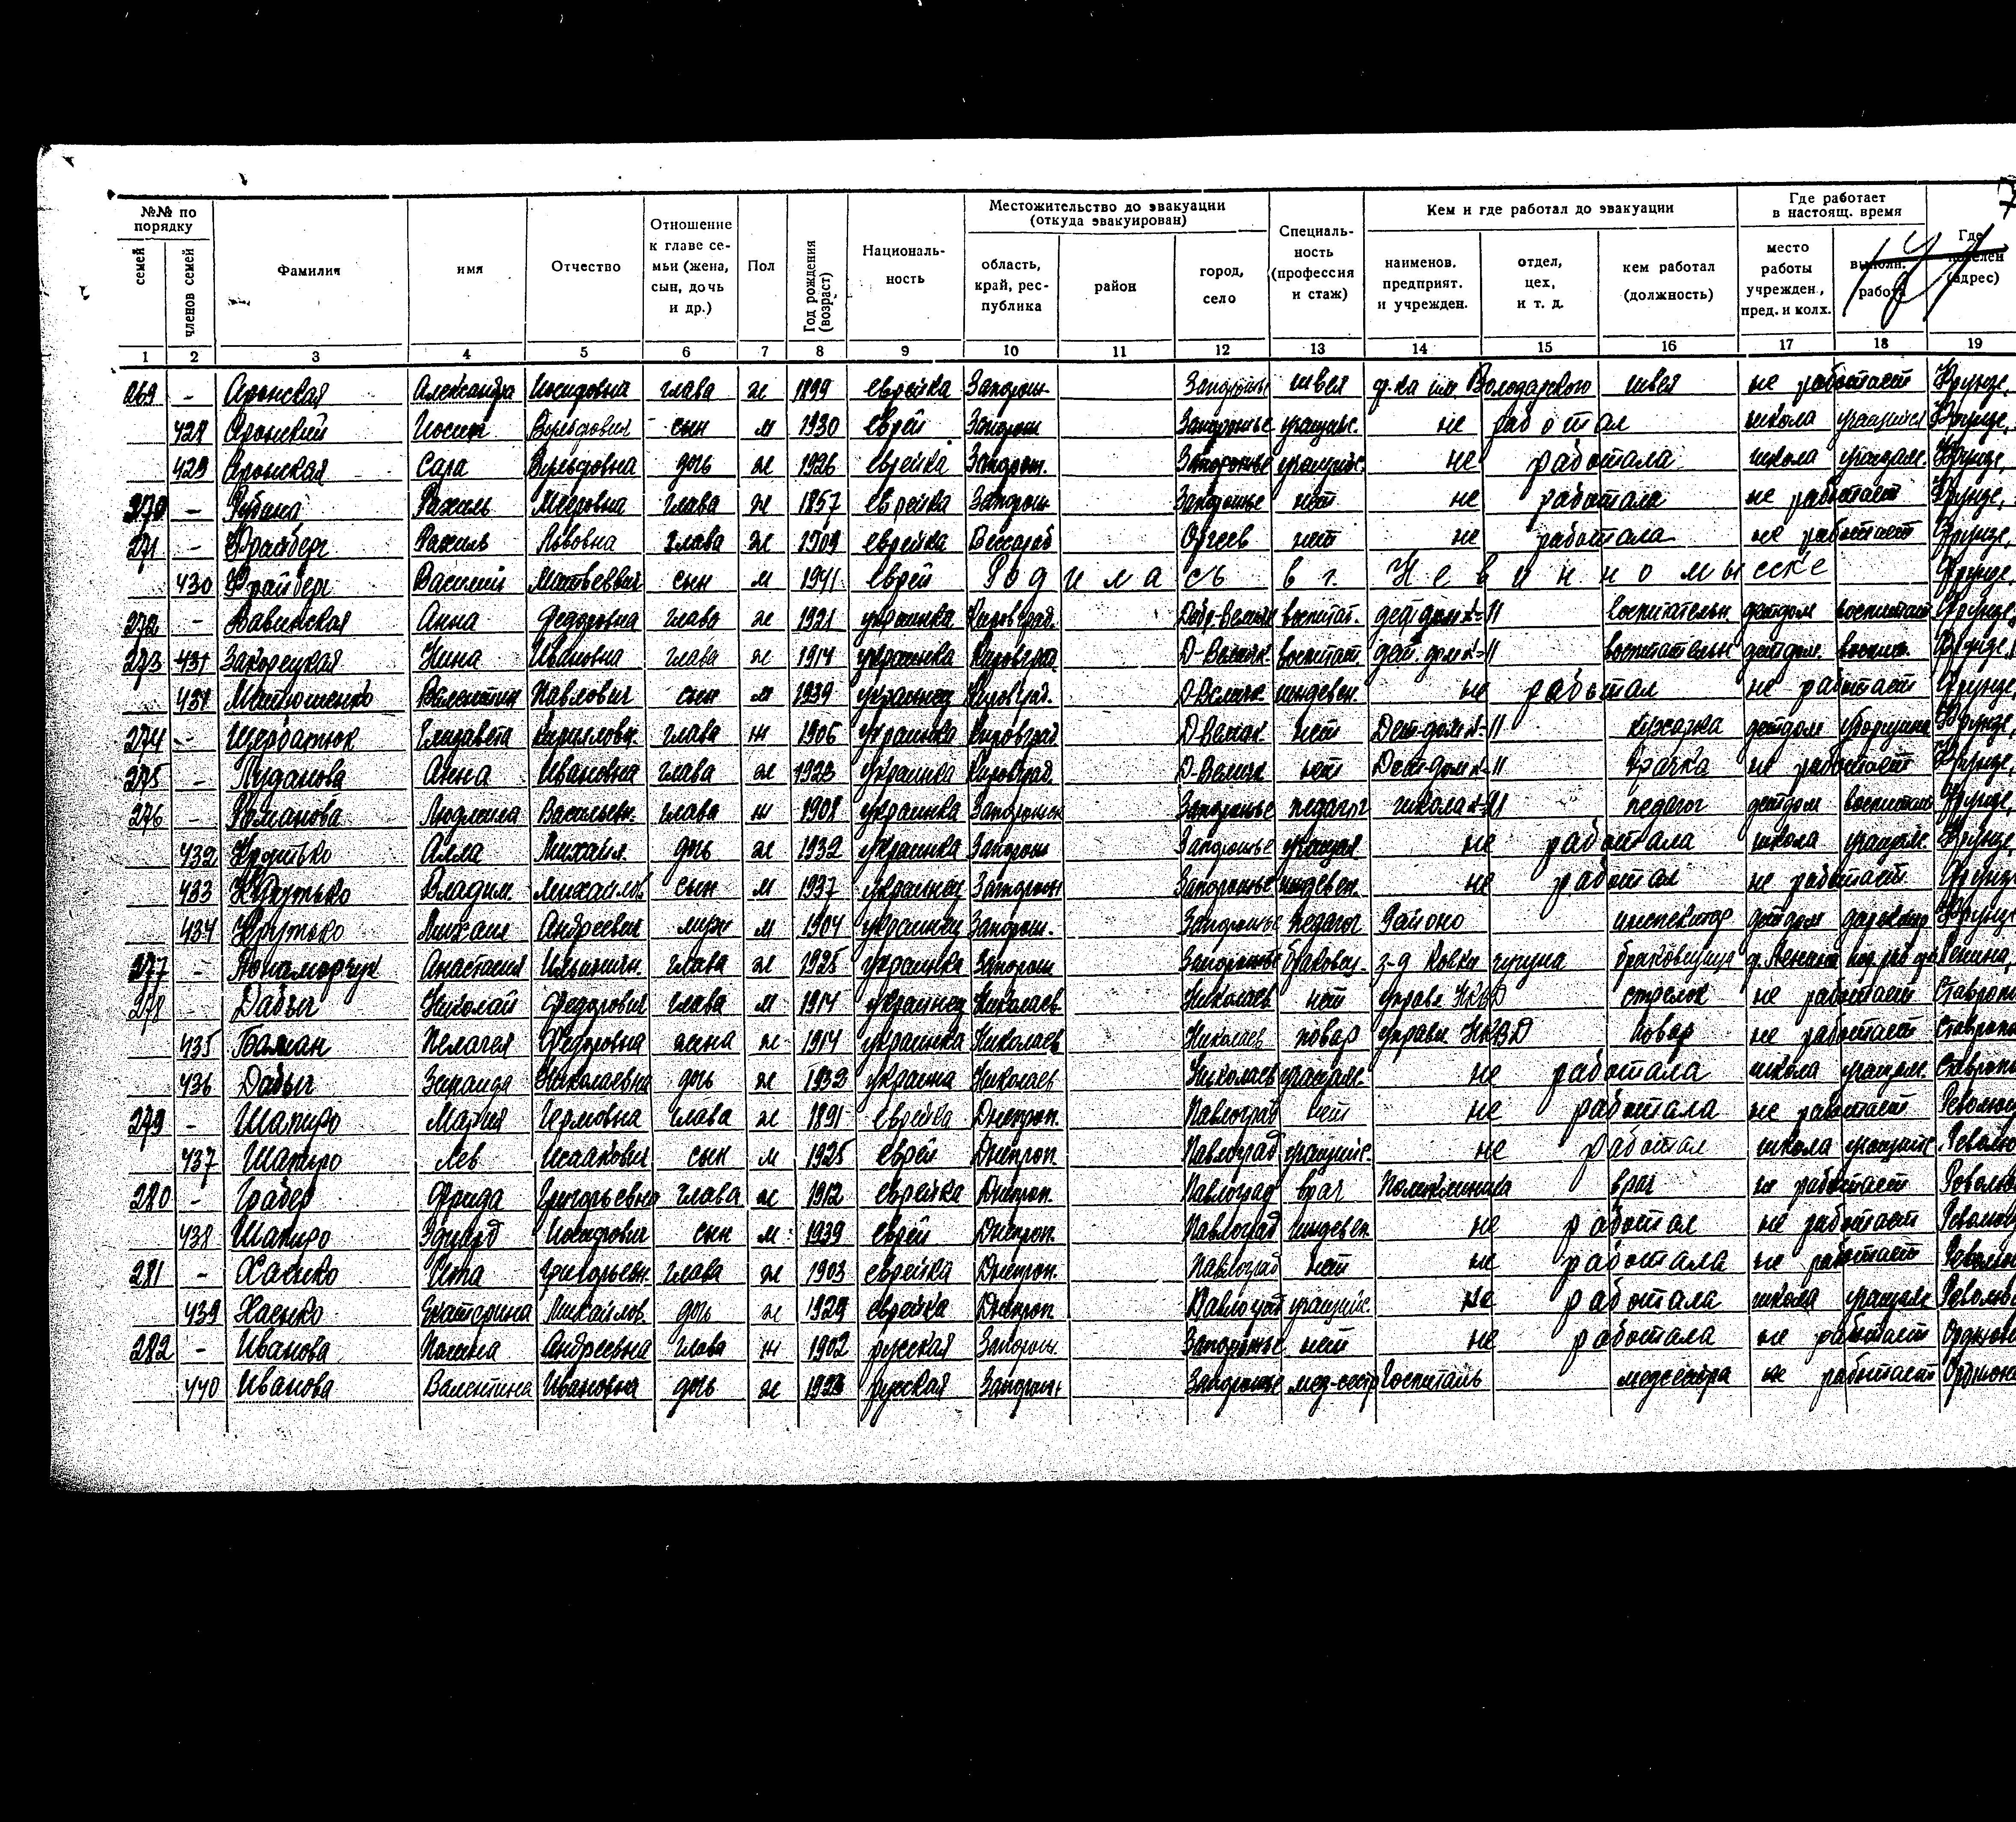 №№ по порядку
семей
членов семей
Фамилия
имя
Отчество
Отношение к главе семьи (жена, сын, дочь и др.)
Пол
Год рождения (возраст)
Националь-
ность
Местожительство до эвакуации
(откуда эвакуирован)
область, край, рес-публика
район
город, село
Специаль-ность (профессия и стаж)
Кем и где работал до эвакуации
наименов. предприят. и учрежден.
отдел, цех, и т. д.
кем работал (должность)
Где работает в настоящ. время
место работы учрежден., пред. и колх.
выполн. работа
Где (адрес)
1 2 3 4 5 6 7 8 9 10 11 12 13 14 15 16 17 18 19
269 – Аронская Александра Иосифовна глава ж 1899 еврейка Запорож. Запорожье швея ф-ка им. Володарского швея не работает Фрунзе,
428 Аронский Иосиф сын м 1930 еврей Запорож Запорожье учащийс. не работал школа учащийся Фрунзе,
429 Аронская Сара дочь ж 1926 еврейка Запорож. Запорожье учащийс. не работала школа учащам. Фрунзе,
270 – Рахиль Мееровна глава ж 1857 еврейка Запорож Запорожье нет не работала не работает Фрунзе,
271 – Фрайберг Рахиль Львовна глава ж 1909 еврейка Бессараб Оргеев нет не работала не работает Фрунзе,
430 Фрайберг Василий Матвеевич сын м 1941 еврей Родилась в г. Невинномысске Фрунзе,
272 – Анна Федоровна глава ж 1921 украинка Кировград. воспитат. дет дом №-11 воспительн. детдом воспитат Фрунзе,
273 431 Закорецкая Нина Ивановна глава ж 1914 украинка Кировград. воспитат. дет. дом №-11 воспитательн детдом воспит. Фрунзе,
431 Матюшенко Валентин Павлович сын м 1939 украинец Кировград. иждевен. не работал не работает Фрунзе,
274 – Щербатюк Елизавета Кирилловн. глава ж 1906 украинка Кировград нет Дет-дом №-11 кухарка детдом уборщица Фрунзе,
275 – Анна Ивановна глава ж 1923 украинка Кировград. нет Дет-дом №-11 Прачка не работает Фрунзе,
276 – Романова Людмила Васильевн. глава ж 1908 украинка Запорожск Запорожье педагог школа №-11 педагог детдом воспитат Фрунзе,
432 Крутько Алла Михайл. дочь ж 1932 украинка Запорож Запорожье учащая не работала школа учащам. Фрунзе,
433 Крутько Владим. Михайлов сын м 1937 украинец Запорож Запорожье иждевен. не работал не работает Фрунзе
434 Крутько Михаил Андреевич муж м 1904 украинец Запорож. Запорожье педагог Районо инспектор детдом директор Фрунзе
277 – Понаморчук Анастасия Ильиничн. глава ж 1925 украинка Запорож Запорожье браковщ. з-д браковщица ф. Ленина Ленина,
278 – Дабыг Николай Федорович глава м 1914 украинец Николаев Николаев нет управл НКВД стрелок не работает Ставропо
435 Бацман Пелагея Федоровна жена ж 1914 украинка Николаев Николаев повар управл НКВД повар не работает Ставропо
436 Дабыг Зинаида Николаевна дочь ж 1932 украина Николаев Николаев учащам. не работала школа учащам. Ставропо
279 – Шапиро Мария глава ж 1891 еврейка Днепроп. Павлоград нет не работала не работает Революц
437 Шапиро Лев Исаакович сын м 1925 еврей Днепроп. Павлоград учащийс. не работал школа учащийс. Револю
280 – Грабер Фрида Григорьевна глава ж 1912 еврейка Днепроп. Павлоград врач Поликлиника врач не работает Револю
438 Шапиро Эдуард Иосифович сын м 1939 еврей Днепроп. Павлоград иждевен. не работал не работает Револю
281 – Хасико Ита Григорьевн. глава ж 1903 еврейка Днепроп. Павлоград нет не работала не работает Револю
439 Хасько Екатерина Михайлов. дочь ж 1929 еврейка Днепроп Павлоград учащийс. не работала школа учащам Револю
282 – Иванова Полина Андреевна глава ж 1902 русская Запорож. Запорожье нет не работала не работает Орджон
440 Иванова Валентина Ивановна дочь ж 1923 русская Запорож. Запорожье мед-сестр Госпиталь медсестра не работает Орджон